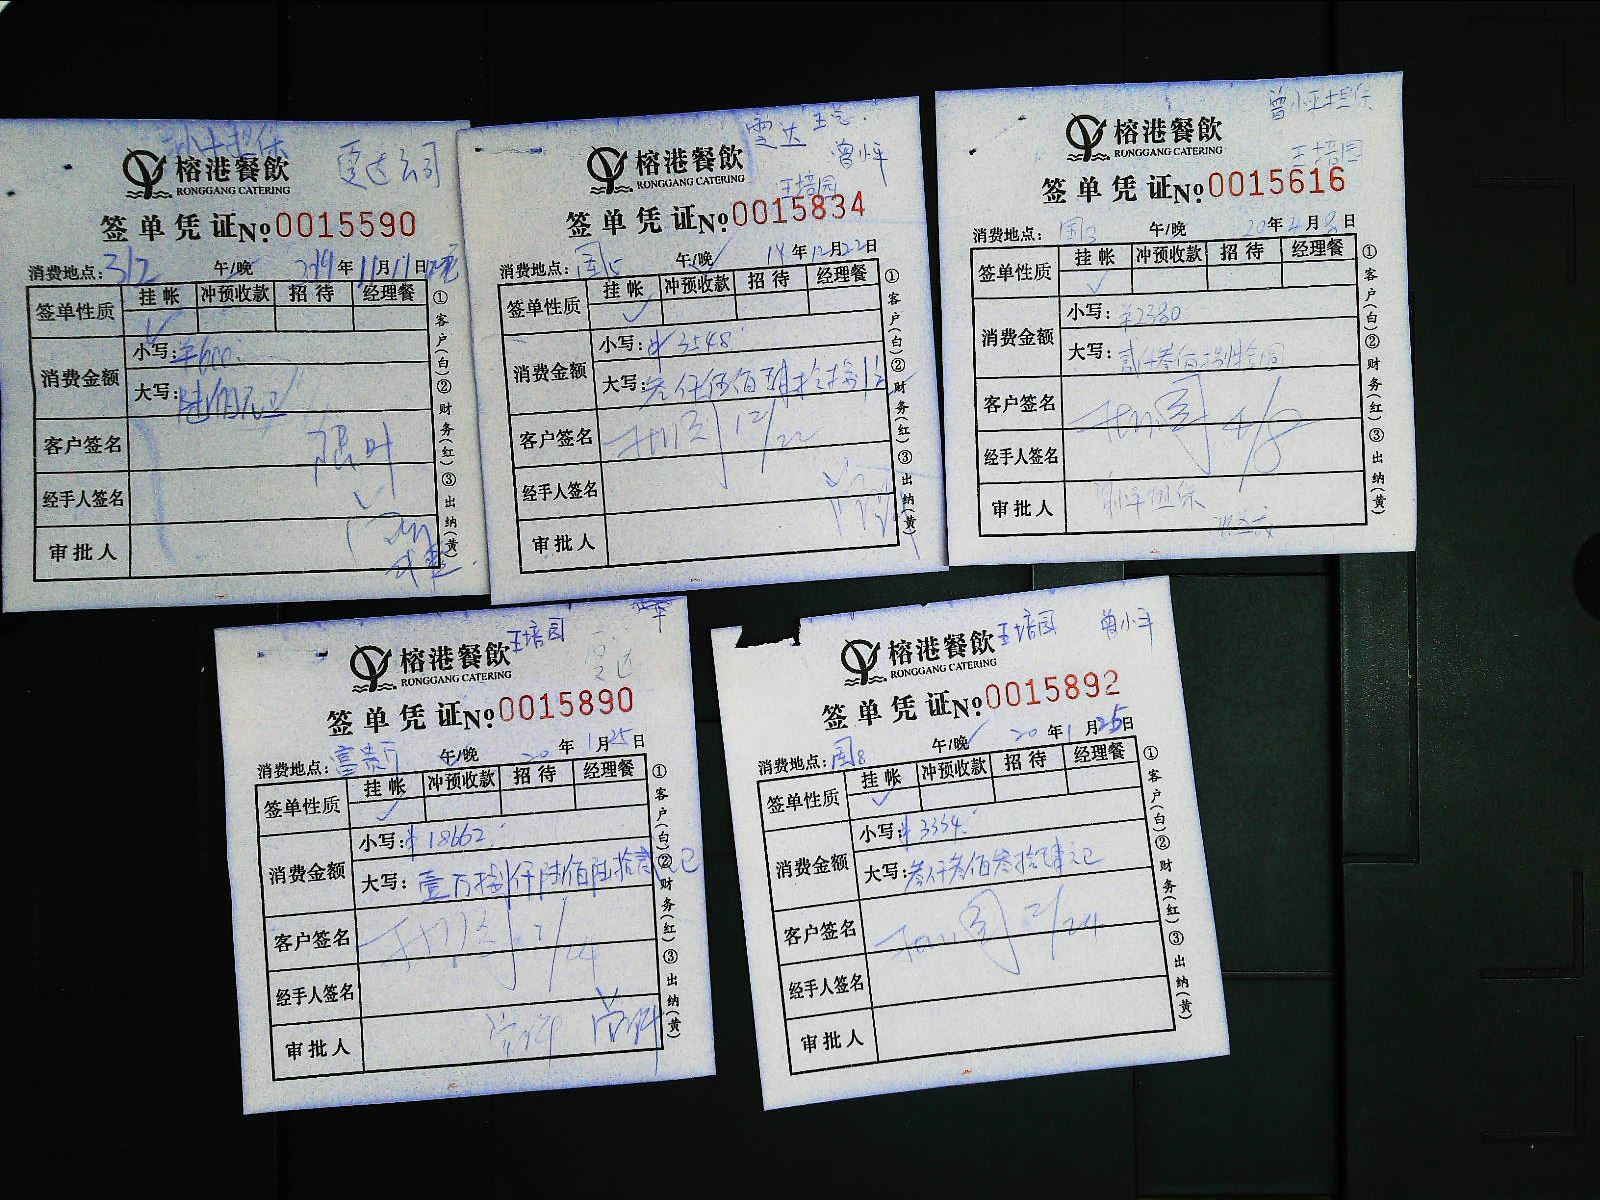 榕港餐飲
雯达公司
RONGGANG CATERING
签单凭证№0015590
消费地点：312 午/晚 2019年11月11日
签单性质 挂帐 冲预收款 招待 经理餐
消费金额 小写：¥600
大写：陆佰元正
客户签名
经手人签名
审批人
①客户(白)②财务(红)③出纳(黄)
雯达 王总
曾小平
榕港餐飲
RONGGANG CATERING
王培园
签单凭证№0015834
消费地点：围15 午/晚 19年12月22日
签单性质 挂帐 冲预收款 招待 经理餐
消费金额 小写：¥3548
大写：叁仟伍佰肆拾捌
客户签名 12/22
经手人签名
审批人
①客户(白)②财务(红)③出纳(黄)
曾小平担保
榕港餐飲
RONGGANG CATERING
王培园
签单凭证№0015616
消费地点：围3 午/晚 20年4月8日
签单性质 挂帐 冲预收款 招待 经理餐
消费金额 小写：¥2380
大写：贰仟叁佰捌拾
客户签名 4/8
经手人签名
审批人
①客户(白)②财务(红)③出纳(黄)
王培园
榕港餐飲
雯达
RONGGANG CATERING
签单凭证№0015890
消费地点：富贵厅 午/晚 20年1月25日
签单性质 挂帐 冲预收款 招待 经理餐
消费金额 小写：¥18662
大写：壹万捌仟陆佰陆拾贰元正
客户签名 2/24
经手人签名
审批人
①客户(白)②财务(红)③出纳(黄)
王培园 曾小平
榕港餐飲
RONGGANG CATERING
签单凭证№0015892
消费地点：围8 午/晚 20年1月25日
签单性质 挂帐 冲预收款 招待 经理餐
消费金额 小写：¥3334
大写：叁仟叁佰叁拾肆元正
客户签名 2/24
经手人签名
审批人
①客户(白)②财务(红)③出纳(黄)